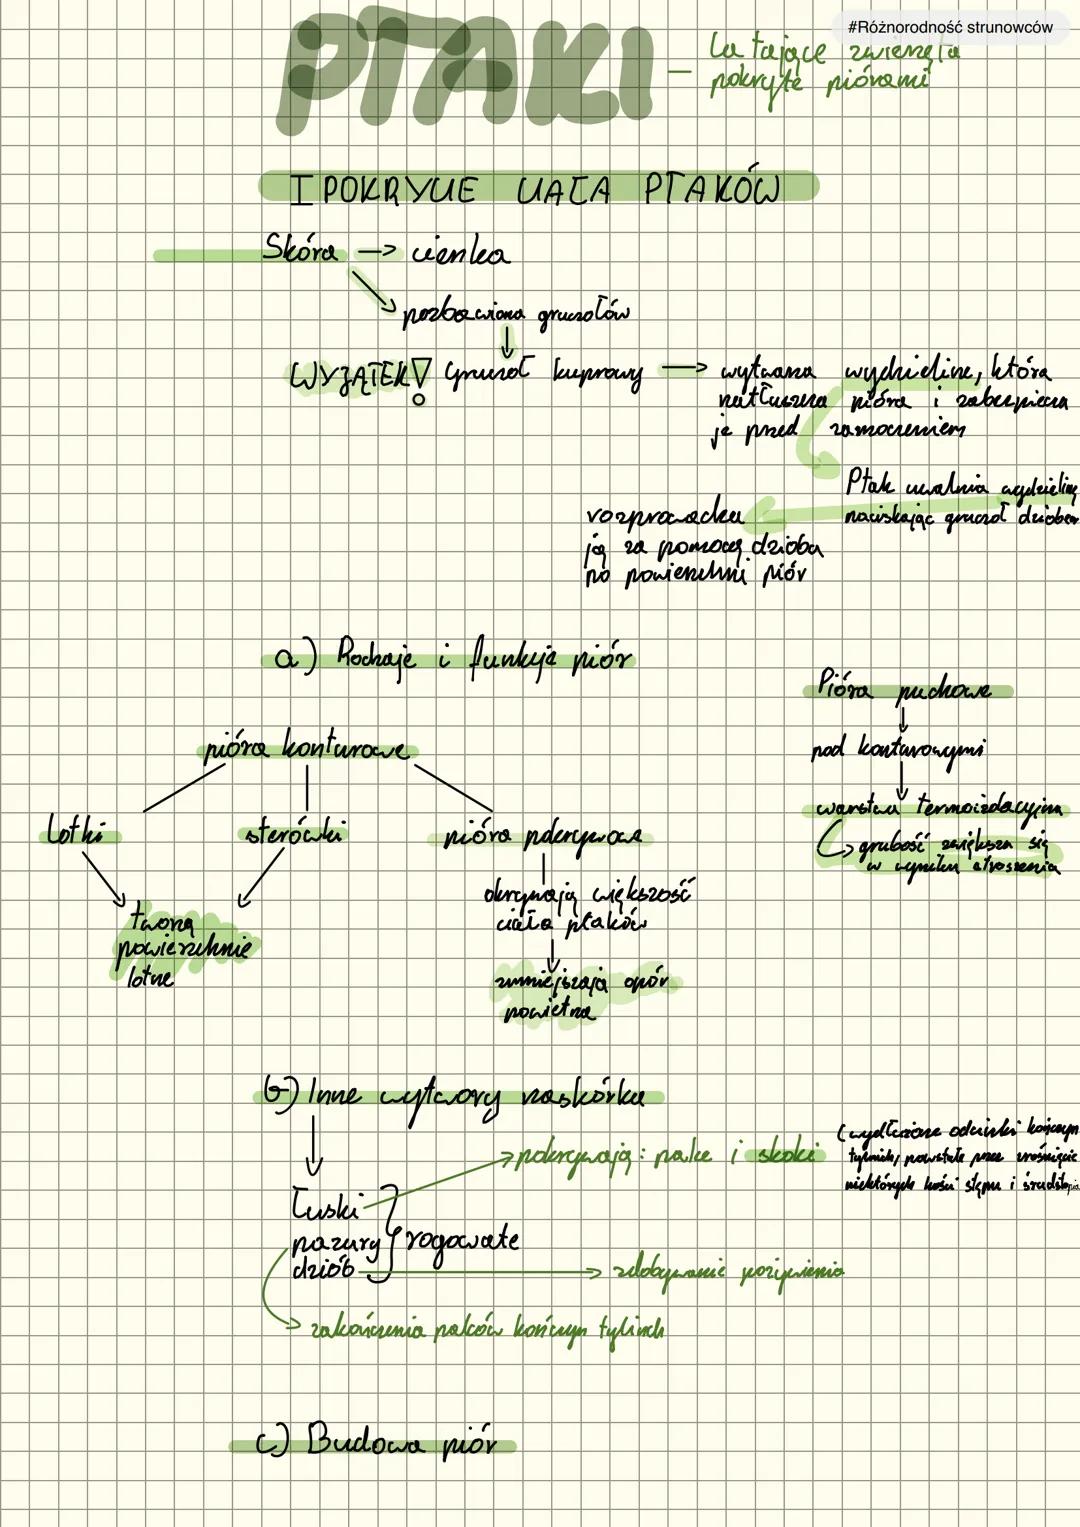 #Różnorodność strunowców
PTAKI
— latające zwierzęta
pokryte piórami
I POKRYCIE CIAŁA PTAKÓW
Skóra → cienka
pozbawiona gruczołów
WYJĄTEK! gruczoł kuprowy → wytwarza wydzielinę, która
natłuszcza pióra i zabezpiecza
je przed zamoczeniem
Ptak uwalnia wydzielinę
naciskając gruczoł dziobem
rozprowadza
ją za pomocą dzioba
po powierzchni piór
a) Rodzaje i funkcje piór
Pióra puchowe
pod konturowymi
warstwa termoizolacyjna
grubość zwiększa się
w wyniku stroszenia
pióra konturowe
lotki
sterówki
pióra pokrywowe
tworzą
powierzchnie
lotne
okrywają większość
ciała ptaków
zmniejszają opór
powietrza
b) Inne wytwory naskórka
→ pokrywają: palce i skoki
(wydłużone odcinki kończyn
tylnich, powstałe przez zrośnięcie
niektórych kości stępu i śródstopia
Łuski
pazury } rogowate
dziób → zdobywanie pożywienia
→ zakończenia palców kończyn tylnich
c) Budowa piór